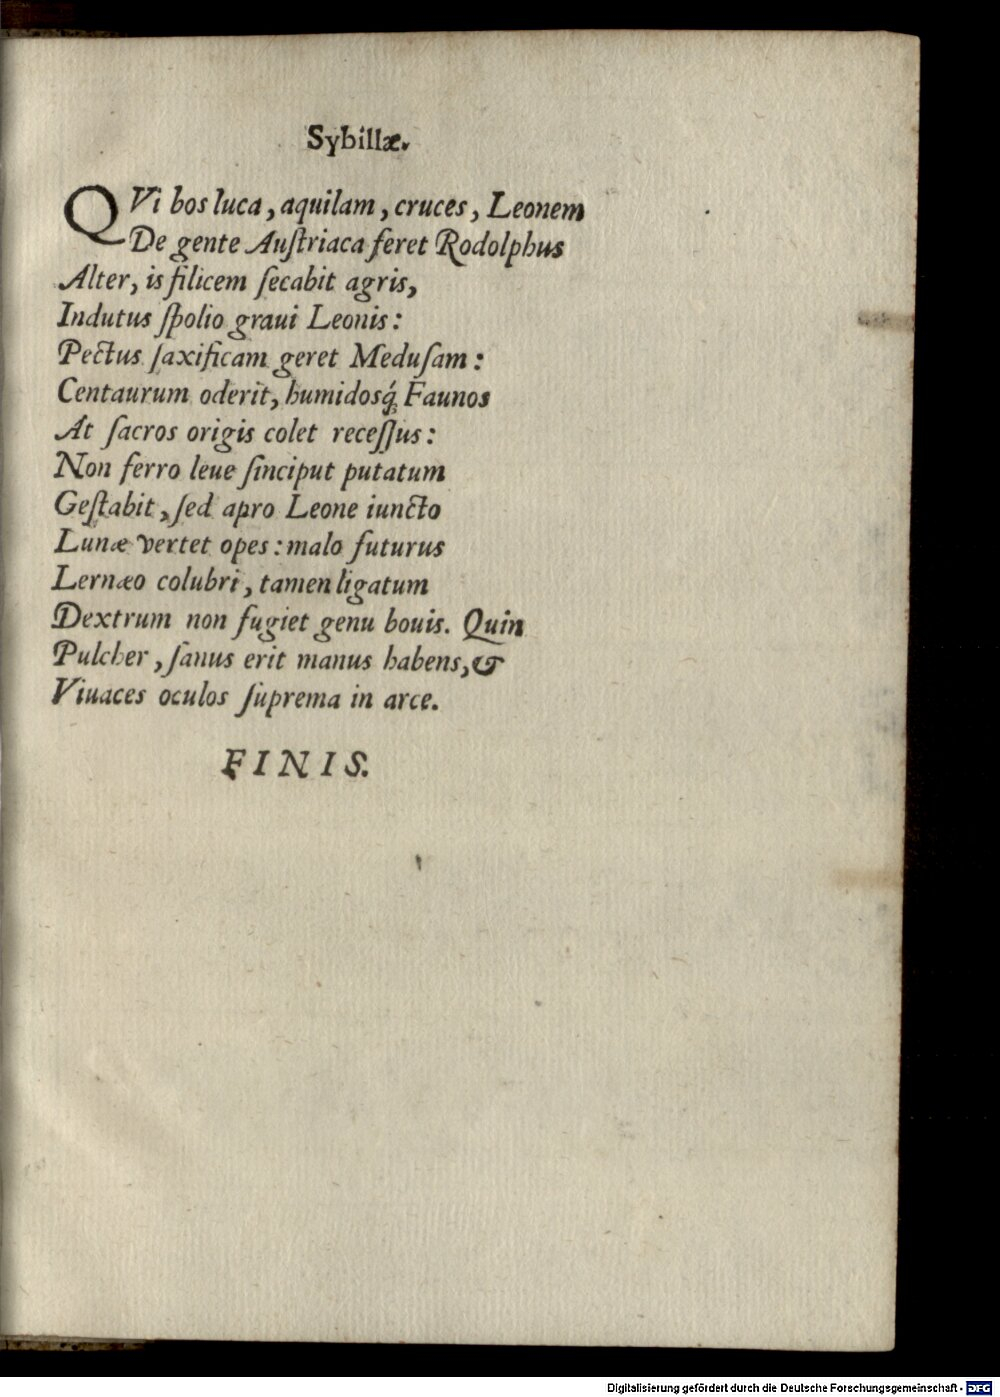 Sybillæ.
QVi bos luca, aquilam, cruces, Leonem
De gente Auſtriaca feret Rodolphus
Alter, is filicem ſecabit agris,
Indutus ſpolio graui Leonis:
Pectus ſaxificam geret Meduſam:
Centaurum oderit, humidosq́; Faunos
At ſacros origis colet receſſus:
Non ferro leue ſinciput putatum
Geſtabit, ſed apro Leone iuncto
Lunæ vertet opes: malo futurus
Lernæo colubri, tamen ligatum
Dextrum non fugiet genu bouis. Quin
Pulcher, ſanus erit manus habens, &
Viuaces oculos ſuprema in arce.
FINIS.
Digitalisierung gefördert durch die Deutsche Forschungsgemeinschaft - DFG